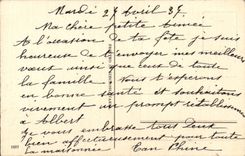 Mardi 27 Avril 37
Ma chère petite Aimée
A l'occasion de ta fête je suis
heureuse de t'envoyer mes meilleurs
vœux ainsi que ceux de toute
la famille Nous t'espérons
en bonne santé et souhaitons
vivement un prompt rétablissement
à Albert
Je vous embrasse tous deux
bien affectueusement pour toute
la maisonnée